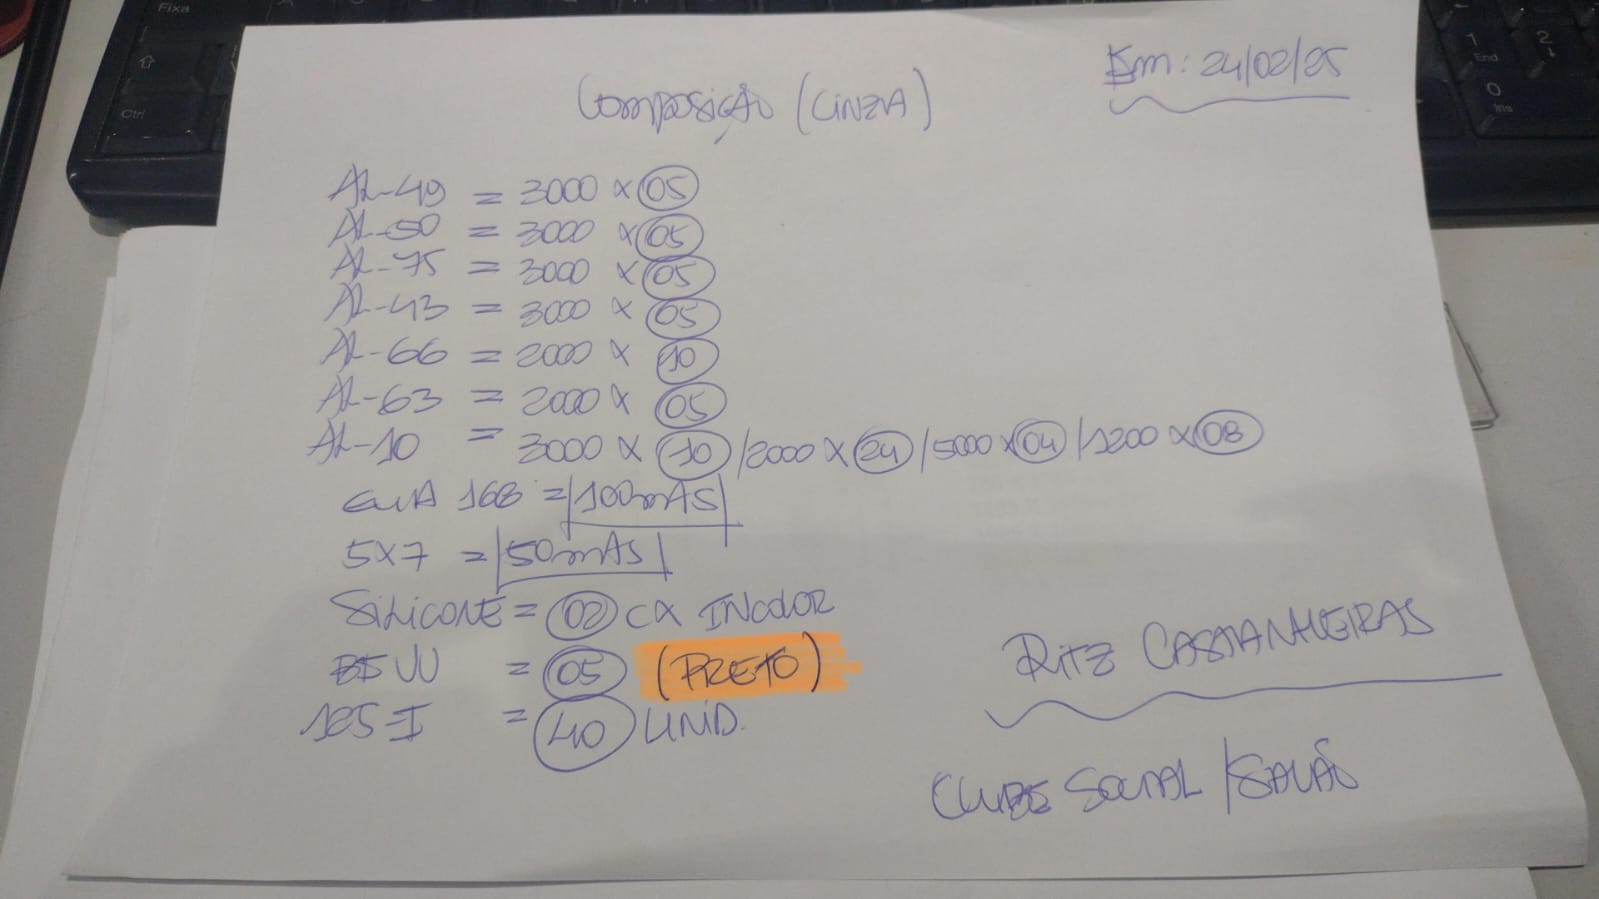 Em: 24/02/25
Composição (CINZA)
AL-49 = 3000 x 05
AL-50 = 3000 x 05
AL-75 = 3000 x 05
AL-43 = 3000 x 05
AL-66 = 2000 x 10
AL-63 = 2000 x 05
AL-10 = 3000 x 10 / 2000 x 24 / 5000 x 04 / 1200 x 08
168 = 100 mAS
5x7 = 50 mAS
SILICONE = 02 CX INCOLOR
= 05 (PRETO)
125-I = 40 UNID.
RITZ CASTANHEIRAS
CLUBE SOCIAL / SALÃO
Fixa
Ctrl
1
End
2
0
Ins